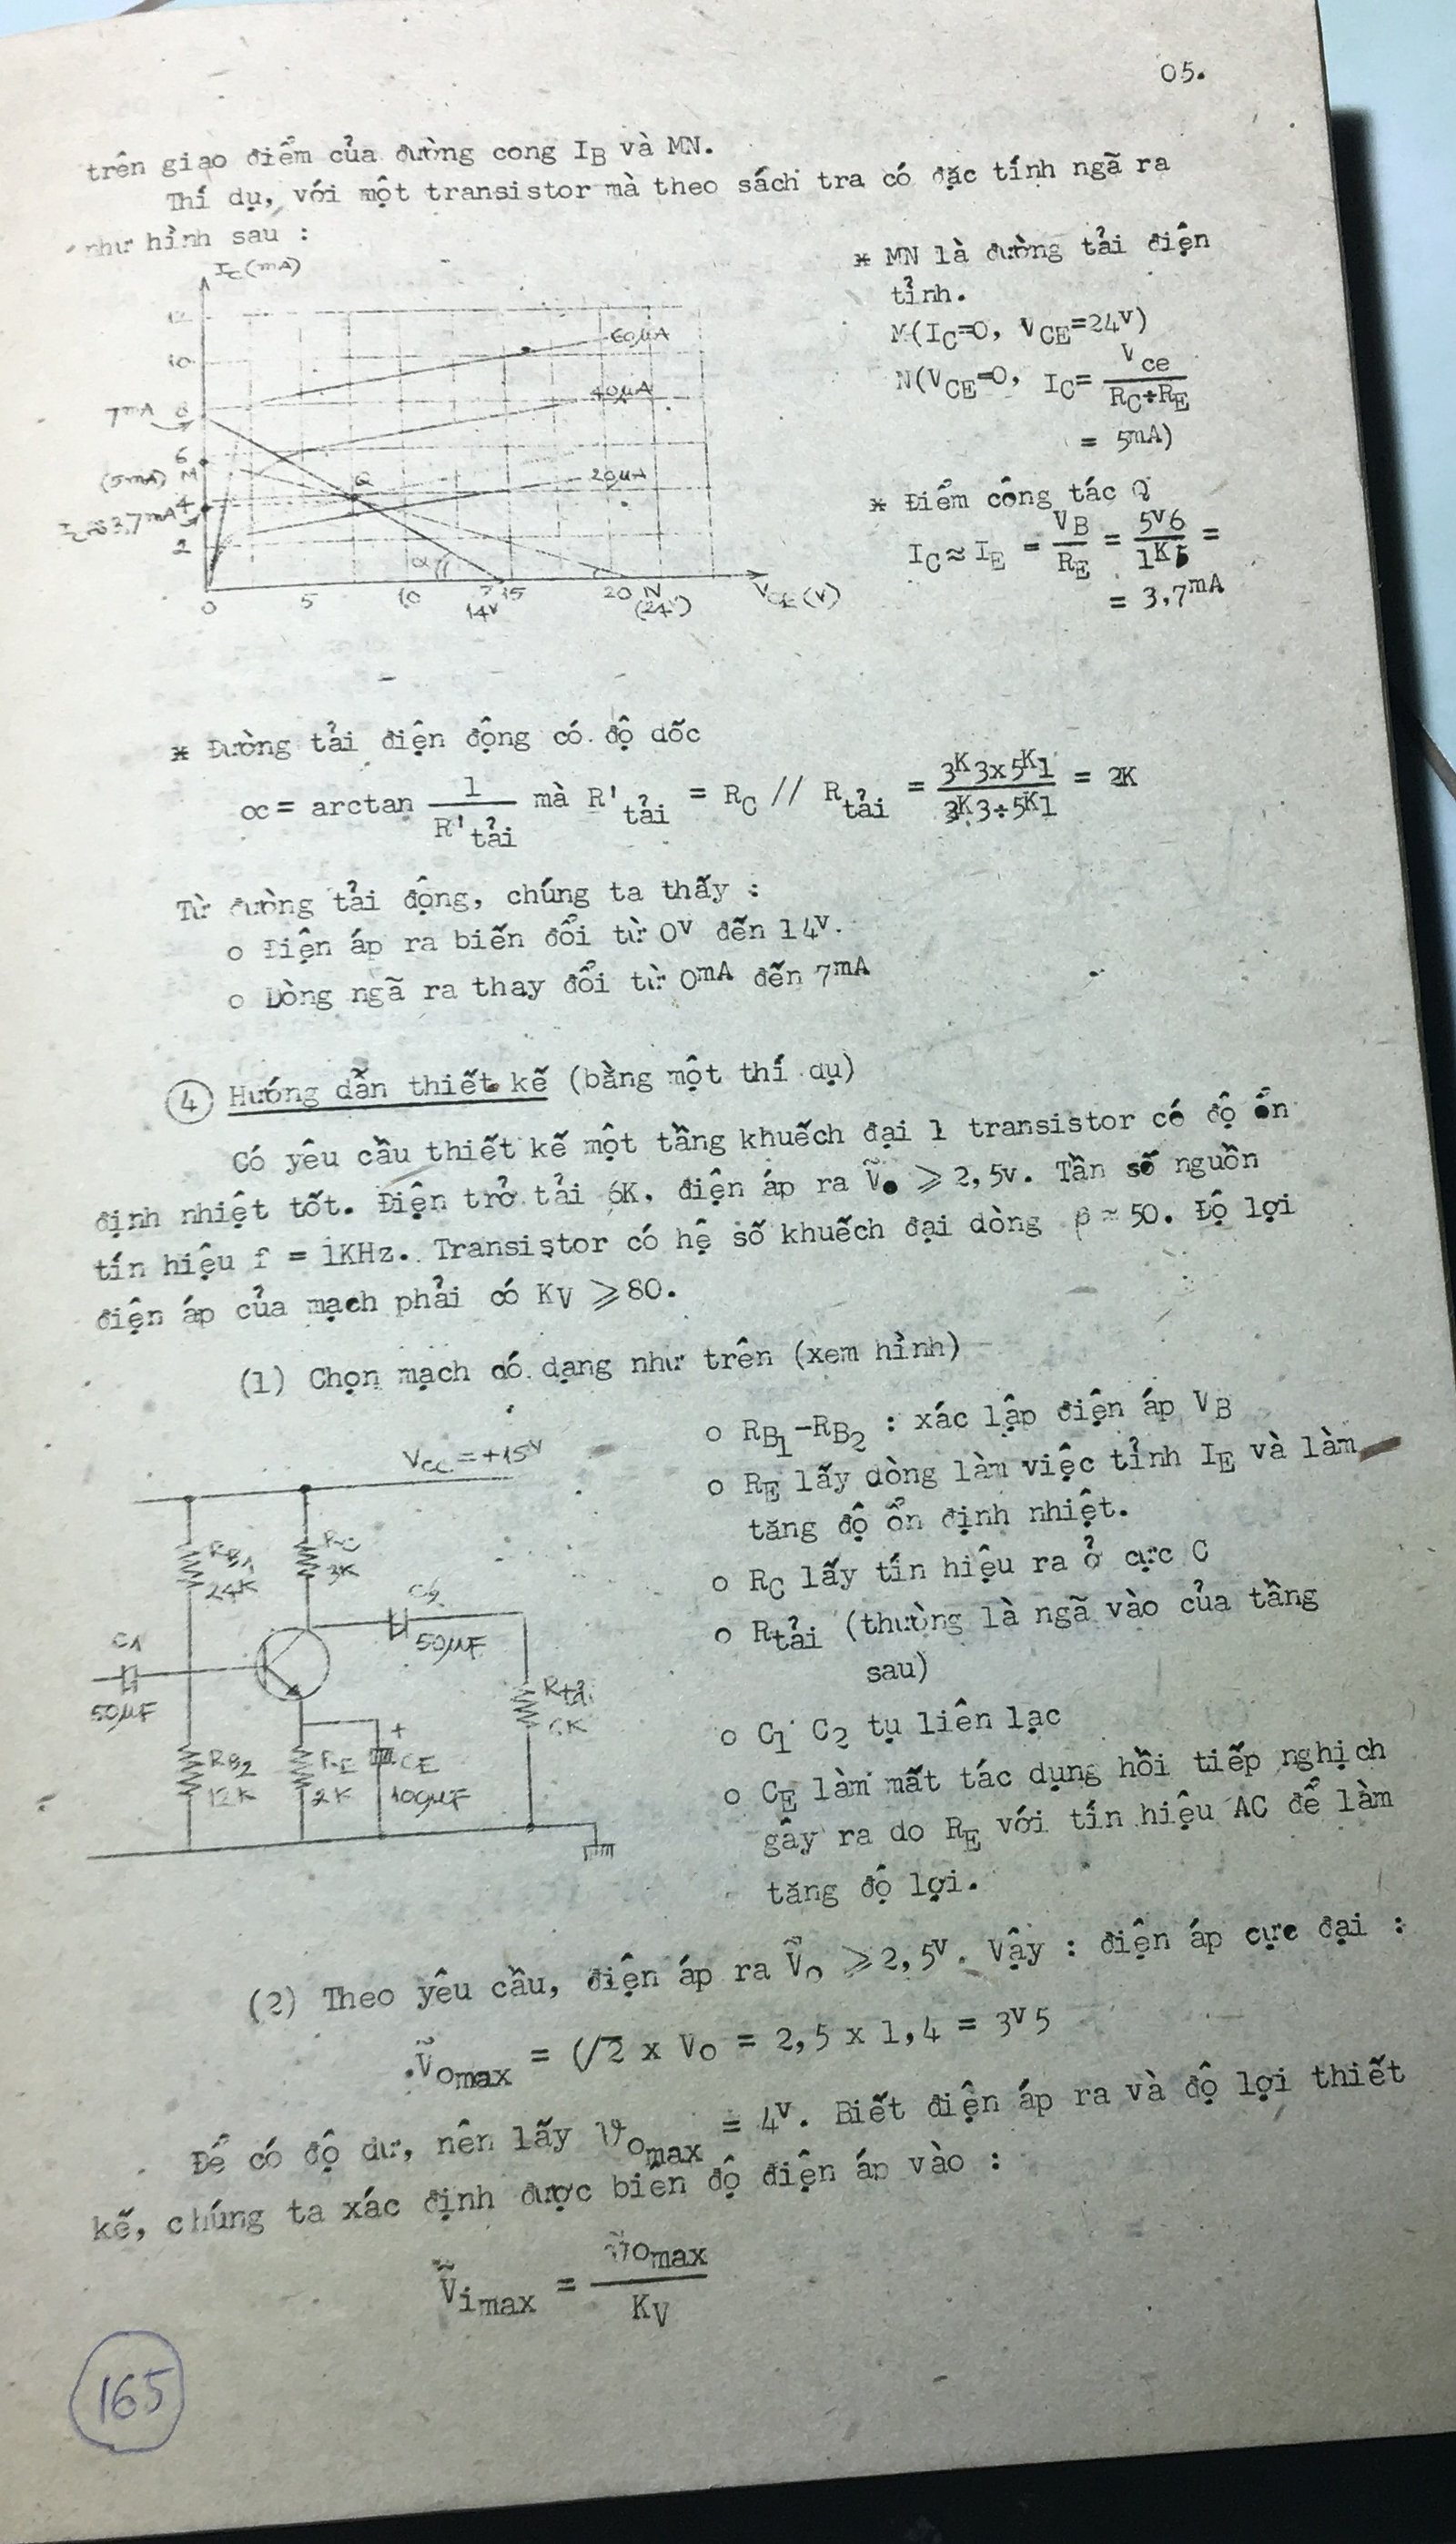 05.
trên giao điểm của đường cong IB và MN.
Thí dụ, với một transistor mà theo sách tra có đặc tính ngã ra
như hình sau :
IC(mA)
12
10
8
7mA
6
(5mA) M
4
IC≈3,7mA
2
0
5
10
14V
15
20
N
(24V)
VCE(V)
60μA
40μA
20μA
Q
α
* MN là đường tải điện
tỉnh.
M(IC=0, VCE=24V)
N(VCE=0, IC= Vce / RC+RE
= 5mA)
* Điểm công tác Q
IC≈IE = VB/RE = 5V6/1K5 =
= 3,7mA
* Đường tải điện động có độ dốc
α = arctan 1/R'tải mà R'tải = RC // Rtải = 3K3x5K1 / 3K3+5K1 = 2K
Từ đường tải động, chúng ta thấy :
o Điện áp ra biến đổi từ 0V đến 14V.
o Dòng ngã ra thay đổi từ 0mA đến 7mA
4 Hướng dẫn thiết kế (bằng một thí dụ)
Có yêu cầu thiết kế một tầng khuếch đại 1 transistor có độ ổn
định nhiệt tốt. Điện trở tải 6K, điện áp ra Ṽo ⩾ 2,5v. Tần số nguồn
tín hiệu f = 1KHz. Transistor có hệ số khuếch đại dòng β ≈ 50. Độ lợi
điện áp của mạch phải có KV ⩾ 80.
(1) Chọn mạch có dạng như trên (xem hình)
VCC=+15V
RB1
24K
RC
3K
C2
50μF
C1
50μF
Rtải
6K
RB2
12K
RE
2K
+
CE
100μF
o RB1-RB2 : xác lập điện áp VB
o RE lấy dòng làm việc tỉnh IE và làm
tăng độ ổn định nhiệt.
o RC lấy tín hiệu ra ở cực C
o Rtải (thường là ngã vào của tầng
sau)
o C1 C2 tụ liên lạc
o CE làm mất tác dụng hồi tiếp nghịch
gây ra do RE với tín hiệu AC để làm
tăng độ lợi.
(2) Theo yêu cầu, điện áp ra Ṽo ⩾ 2,5V. Vậy : điện áp cực đại :
Ṽomax = (√2 x Vo = 2,5 x 1,4 = 3V5
Để có độ dư, nên lấy Vomax = 4V. Biết điện áp ra và độ lợi thiết
kế, chúng ta xác định được biên độ điện áp vào :
Ṽimax = Ṽomax / KV
165